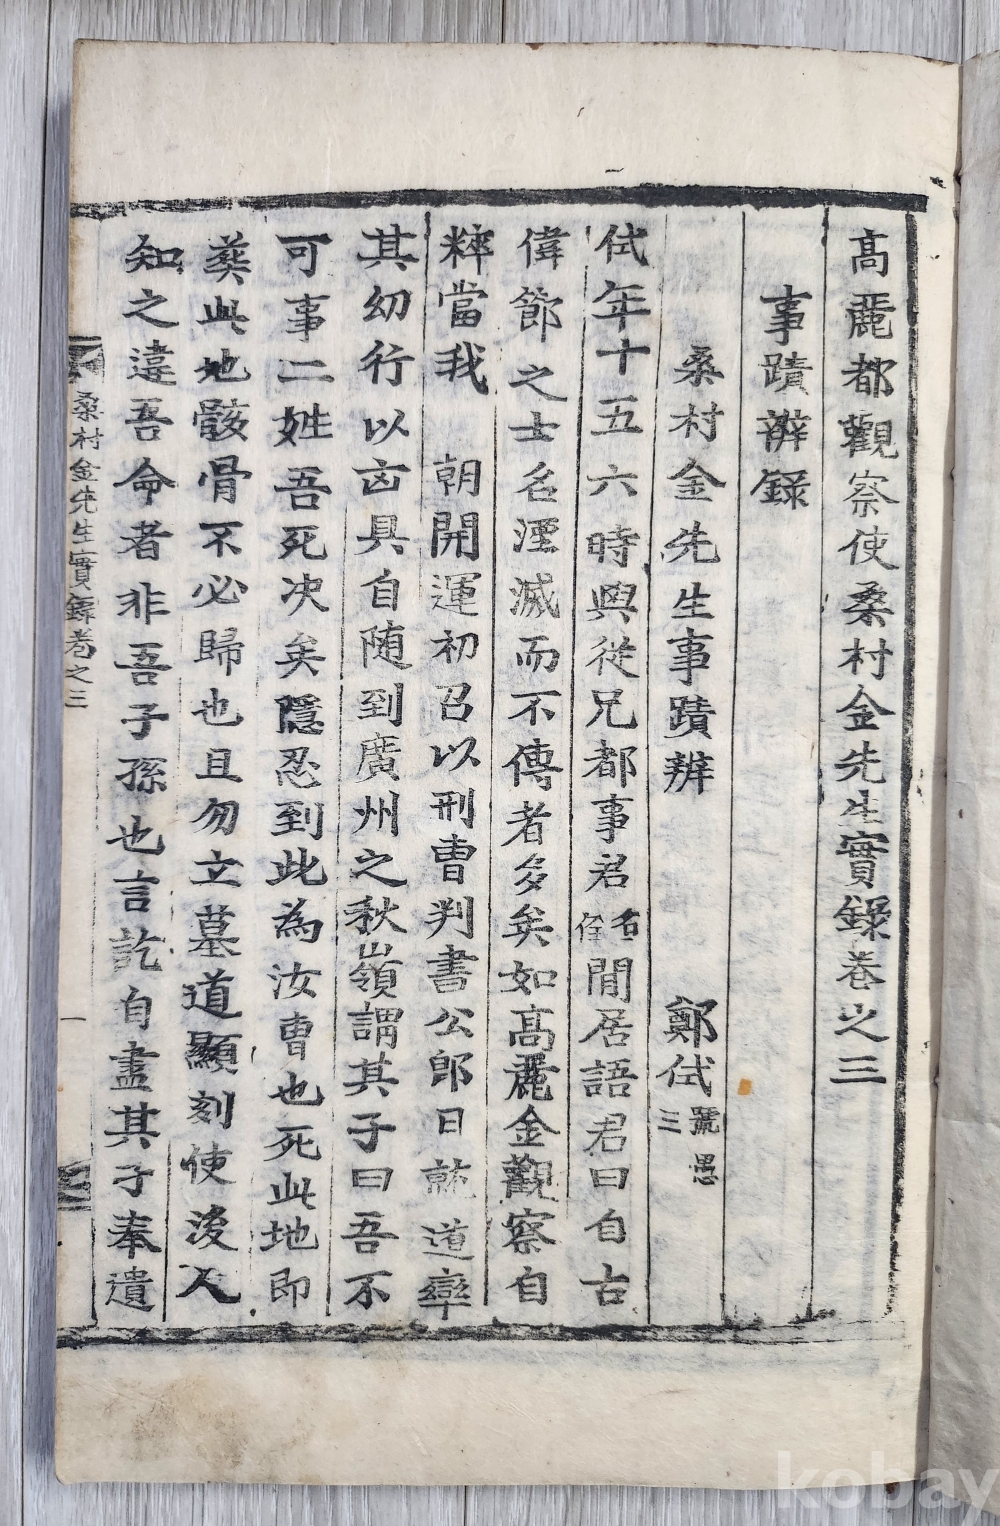 高麗都觀察使桑村金先生實錄卷之三
事蹟辨錄
桑村金先生事蹟辨 鄭侙號愚三
侙年十五六時與從兄都事君名㒞閒居語君曰自古
偉節之士名湮滅而不傳者多矣如高麗金觀察自
粹當我 朝開運初召以刑曹判書公卽日就道率
其幼行以凶具自随到廣州之秋嶺謂其子曰吾不
可事二姓吾死决矣隱忍到此為汝曹也死此地即
葬此地骸骨不必歸也且勿立墓道顯刻使後人
知之違吾命者非吾子孫也言訖自盡其子奉遺
桑村金先生實錄卷之三
一
kobay